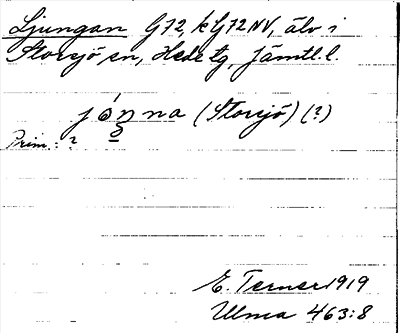 Ljungan G72, k G72NV, älv i
Storsjö sn, Hede tg, Jämtl. l.
jóŋna (Storsjö) (?)
Prim.: ?
E. Terner 1919
Ulma 463:8